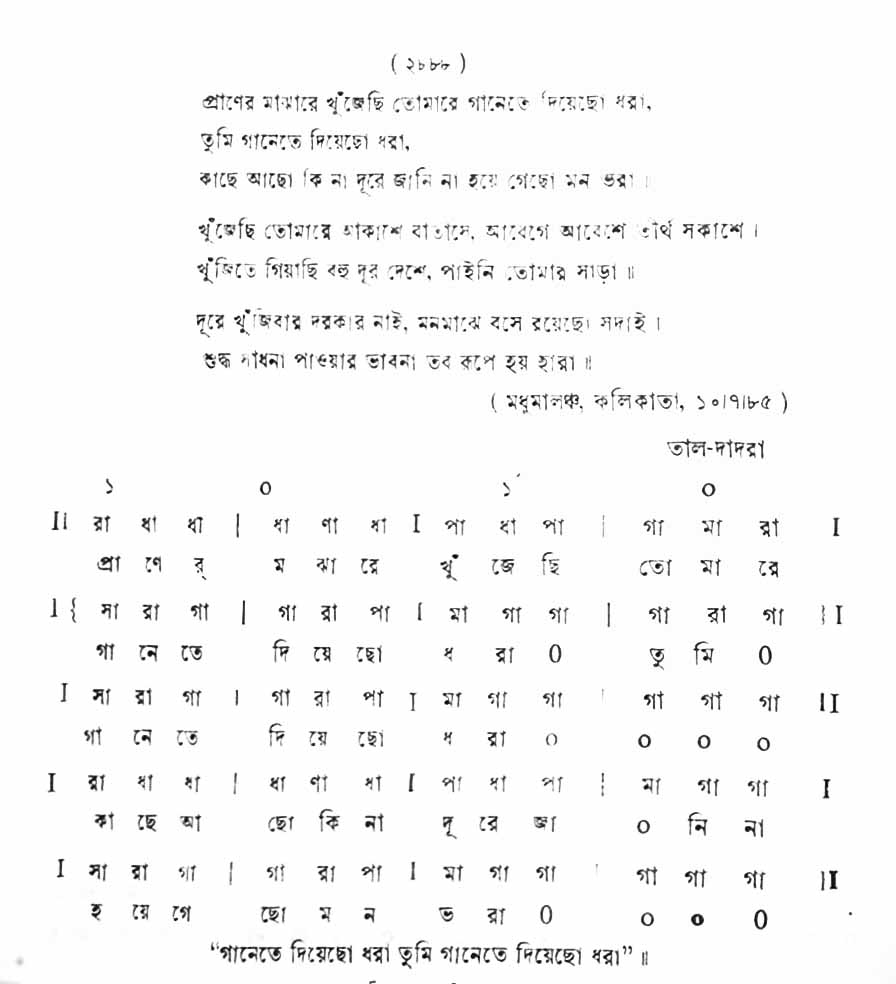 ( ২৮৮৮ )
প্রাণের মাঝারে খুঁজেছি তোমারে গানেতে দিয়েছো ধরা,
তুমি গানেতে দিয়েছো ধরা,
কাছে আছো কি না দূরে জানি না হয়ে গেছো মন ভরা ॥
খুঁজেছি তোমারে আকাশে বাতাসে, আবেগে আবেশে তীর্থ সকাশে ।
খুঁজিতে গিয়াছি বহু দূর দেশে, পাইনি তোমার সাড়া ॥
দূরে খুঁজিবার দরকার নাই, মনমাঝে বসে রয়েছো সদাই ।
শুদ্ধ সাধনা পাওয়ার ভাবনা তব রূপে হয় হারা ॥
( মধুমালঞ্চ, কলিকাতা, ১০।৭।৮৫ )
তাল-দাদরা
১ ০ ১´ ০
II রা ধা ধা | ধা ণা ধা I পা ধা পা | গা মা রা I
প্রা ণে র্ ম ঝা রে খুঁ জে ছি তো মা রে
I { সা রা গা | গা রা পা I মা গা গা | গা রা গা } I
গা নে তে দি য়ে ছো ধ রা 0 তু মি 0
I সা রা গা | গা রা পা I মা গা গা | গা গা গা II
গা নে তে দি য়ে ছো ধ রা ০ ০ ০ ০
I রা ধা ধা | ধা ণা ধা I পা ধা পা | মা গা গা I
কা ছে আ ছো কি না দূ রে জা ০ নি না
I সা রা গা | গা রা পা I মা গা গা | গা গা গা II
হ য়ে গে ছো ম ন ভ রা 0 ০ ০ 0
“গানেতে দিয়েছো ধরা তুমি গানেতে দিয়েছো ধরা” ॥